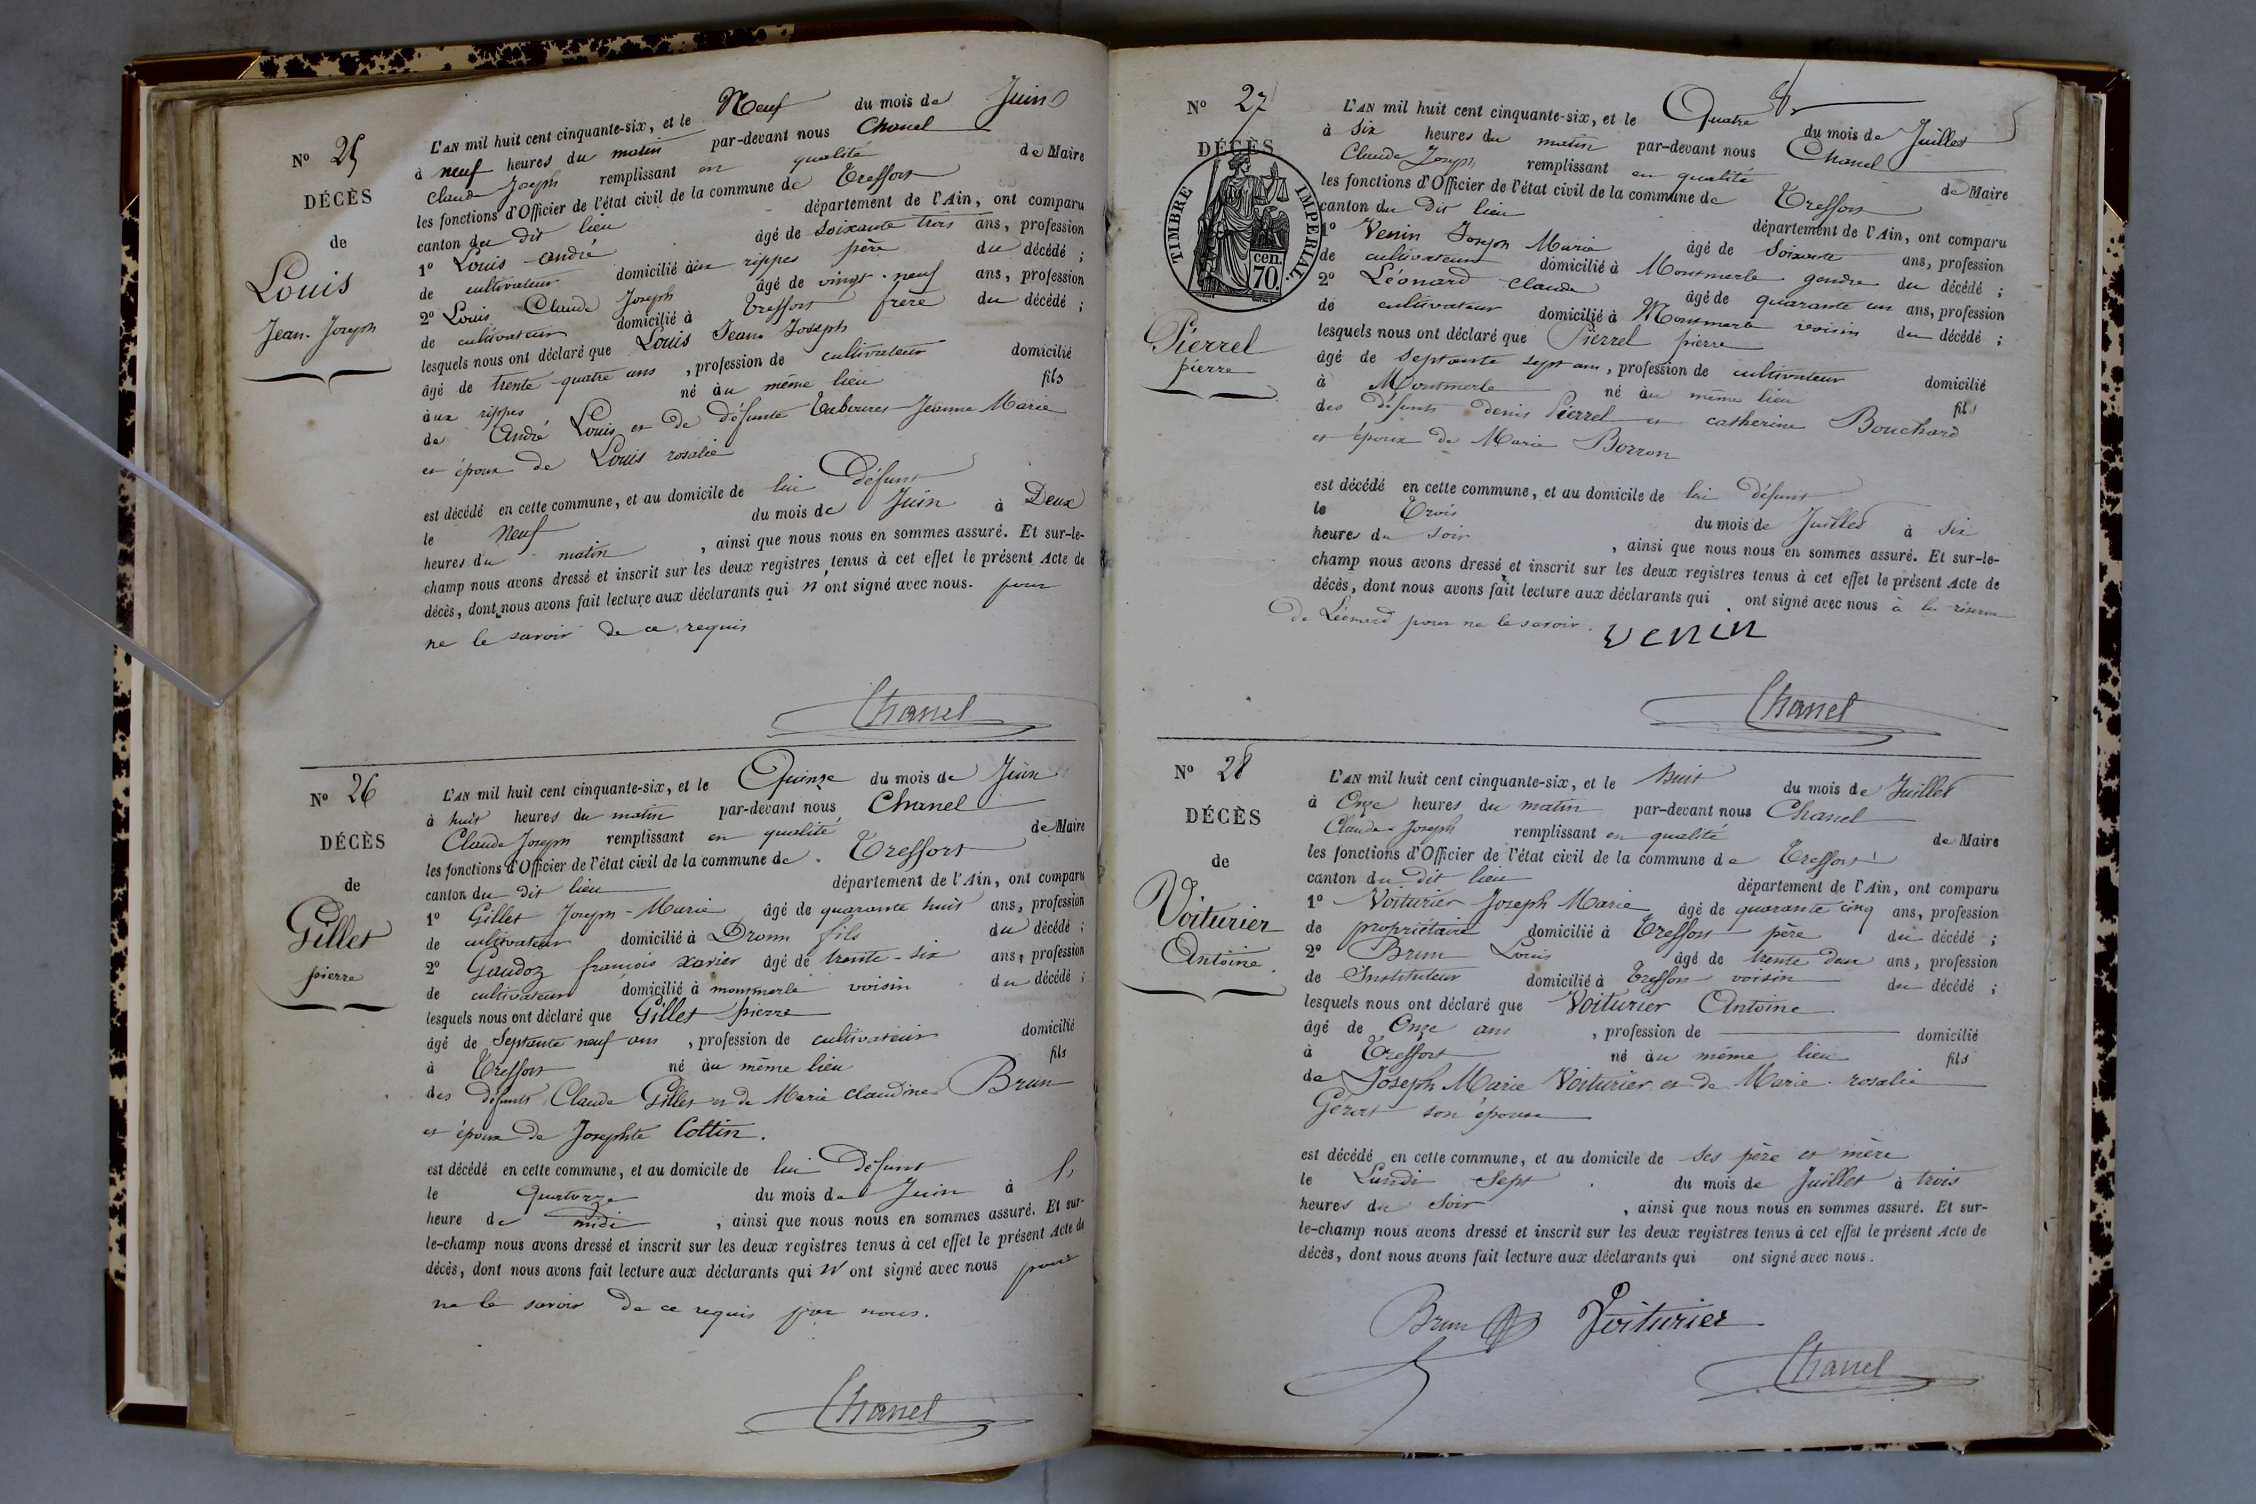 N° 25
DÉCÈS
de
Louis
Jean-Joseph
L'AN mil huit cent cinquante-six, et le Neuf du mois de Juin
à neuf heures du matin par-devant nous Chanel
Claude Joseph remplissant en qualité de Maire
les fonctions d'Officier de l'état civil de la commune de Treffort
canton du dit lieu département de l'Ain, ont comparu
1° Louis andré âgé de soixante trois ans, profession
de cultivateur domicilié aux rippes père du décédé ;
2° Louis Claude Joseph âgé de vingt-neuf ans, profession
de cultivateur domicilié à Treffort frère du décédé ;
lesquels nous ont déclaré que Louis Jean Joseph
âgé de trente-quatre ans , profession de cultivateur domicilié
aux rippes né au même lieu fils
de André Louis et de défunte Jeanne Marie
et époux de Louis rosalie
est décédé en cette commune, et au domicile de lui défunt
le Neuf du mois de Juin à Deux
heures du matin , ainsi que nous nous en sommes assuré. Et sur-le-
champ nous avons dressé et inscrit sur les deux registres tenus à cet effet le présent Acte de
décès, dont nous avons fait lecture aux déclarants qui n'ont signé avec nous. pour
ne le savoir de ce requis
Chanel
N° 26
DÉCÈS
de
Gillet
pierre
L'AN mil huit cent cinquante-six, et le Quinze du mois de Juin
à huit heures du matin par-devant nous Chanel
Claude Joseph remplissant en qualité de Maire
les fonctions d'Officier de l'état civil de la commune de Treffort
canton du dit lieu département de l'Ain, ont comparu
1° Gillet Joseph-Marie âgé de quarante huit ans, profession
de cultivateur domicilié à Dromn fils du décédé ;
2° Gaudoz francois xavier âgé de trente-six ans, profession
de cultivateur domicilié à montmerle voisin du décédé ;
lesquels nous ont déclaré que Gillet pierre
âgé de Septante neuf ans , profession de cultivateur domicilié
à Treffort né au même lieu fils
des défunts Claude Gillet et de Marie claudine Brun
et époux de Josephte Cottin.
est décédé en cette commune, et au domicile de lui Défunt
le Quatorze du mois de Juin à
heure de midi , ainsi que nous nous en sommes assuré. Et sur-
le-champ nous avons dressé et inscrit sur les deux registres tenus à cet effet le présent Acte de
décès, dont nous avons fait lecture aux déclarants qui n'ont signé avec nous pour
ne le savoir de ce requis par nous.
Chanel
N° 27
DÉCÈS
TIMBRE IMPERIAL.
cen.
70.
Pierrel
pierre
L'AN mil huit cent cinquante-six, et le Quatre du mois de Juillet
à six heures du matin par-devant nous Chanel
Claude Joseph remplissant en qualité de Maire
les fonctions d'Officier de l'état civil de la commune de Treffort
canton du dit lieu département de l'Ain, ont comparu
1° Venin Joseph Marie âgé de Soixante ans, profession
de cultivateur domicilié à Montmerle gendre du décédé ;
2° Léonard claude âgé de quarante un ans, profession
de cultivateur domicilié à Montmerle voisin du décédé ;
lesquels nous ont déclaré que Pierrel pierre
âgé de septante sept ans , profession de cultivateur domicilié
à Montmerle né au même lieu fils
des défunts denis Pierrel et catherine Bouchard
et époux de Marie Borron
est décédé en cette commune, et au domicile de lui défunt
le Trois du mois de Juillet à six
heures du soir , ainsi que nous nous en sommes assuré. Et sur-le-
champ nous avons dressé et inscrit sur les deux registres tenus à cet effet le présent Acte de
décès, dont nous avons fait lecture aux déclarants qui ont signé avec nous à la réserve
de Léonard pour ne le savoir.
venin
Chanel
N° 28
DÉCÈS
de
Voiturier
Antoine
L'AN mil huit cent cinquante-six, et le huit du mois de Juillet
à Onze heures du matin par-devant nous Chanel
Claude-Joseph remplissant en qualité de Maire
les fonctions d'Officier de l'état civil de la commune de Treffort
canton du dit lieu département de l'Ain, ont comparu
1° Voiturier Joseph Marie âgé de quarante cinq ans, profession
de propriétaire domicilié à Treffort père du décédé ;
2° Brun Louis âgé de trente deux ans, profession
de Instituteur domicilié à Treffort voisin du décédé ;
lesquels nous ont déclaré que Voiturier Antoine
âgé de Onze ans , profession de domicilié
à Treffort né au même lieu fils
de Joseph Marie Voiturier et de Marie rosalie
son épouse
est décédé en cette commune, et au domicile de ses père et mère
le Lundi Sept du mois de Juillet à trois
heures du Soir , ainsi que nous nous en sommes assuré. Et sur-
le-champ nous avons dressé et inscrit sur les deux registres tenus à cet effet le présent Acte de
décès, dont nous avons fait lecture aux déclarants qui ont signé avec nous.
Brun Voiturier
Chanel